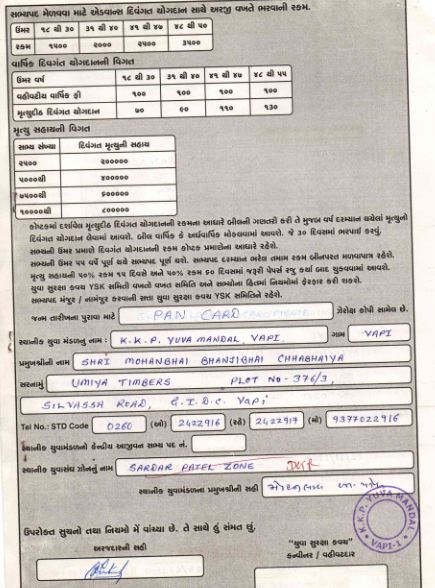 સભ્યપદ મેળવવા માટે એડવાન્સ દિવંગત યોગદાન સાથે અરજી વખતે ભરવાની રકમ.
ઉંમર ૧૮ થી ૩૦ ૩૧ થી ૪૦ ૪૧ થી ૪૭ ૪૮ થી ૫૦
રકમ ૧૫૦૦ ૨૦૦૦ ૨૫૦૦ ૩૫૦૦
વાર્ષિક દિવગંત યોગદાનની વિગત
ઉંમર વર્ષ ૧૮ થી ૩૦ ૩૧ થી ૪૦ ૪૧ થી ૪૭ ૪૮ થી ૫૫
વહીવટીય વાર્ષિક ફી ૧૦૦ ૧૦૦ ૧૦૦ ૧૦૦
મૃત્યુદીઠ દિવંગત યોગદાન ૭૦ ૯૦ ૧૧૦ ૧૩૦
મૃત્યુ સહાયની વિગત
સભ્ય સંખ્યા દિવંગત મૃત્યુની સહાય
૨૫૦૦ ૨૦૦૦૦૦
૫૦૦૦થી ૪૦૦૦૦૦
૭૫૦૦થી ૬૦૦૦૦૦
૧૦૦૦૦થી ૮૦૦૦૦૦
કોષ્ટકમાં દર્શાવેલ મૃત્યુદીઠ દિવંગત યોગદાનની રકમના આધારે બીલની ગણતરી કરી તે મુજબ વર્ષ દરમ્યાન થયેલાં મૃત્યુનો
દિવંગત યોગદાન લેવામાં આવશે. બીલ વાર્ષિક કે અર્ધવાર્ષિક મોકલવામાં આવશે. જે ૩૦ દિવસમાં ભરપાઈ કરવું.
સભ્યની ઉંમર પ્રમાણે દિવંગત યોગદાનની રકમ કોષ્ટક પ્રમાણેના આધારે રહેશે.
સભ્યની ઉંમર ૫૫ વર્ષે પૂર્ણ થયે સભ્યપદ પૂર્ણ થશે. સભ્યપદ દરમ્યાન ભરેલ તમામ રકમ બીનપરત મળવાપાત્ર રહેશે.
મૃત્યુ સહાયની ૫૦% રકમ ૧૫ દિવસે અને ૫૦% રકમ ૬૦ દિવસમાં જરૂરી પેપર્સ રજુ કર્યા બાદ ચુકવવામાં આવશે.
યુવા સુરક્ષા કવચ YSK સમિતી વખતો વખત સમિતિ અને સભ્યોના હિતમાં નિયમોમાં ફેરફાર કરી શકશે.
સભ્યપદ મંજુર / નામંજુર કરવાની સત્તા યુવા સુરક્ષા કવચ YSK સમિતિને રહેશે.
જન્મ તારીખના પુરાવા માટે PAN CARD ઝેરોક્ષ કોપી સામેલ છે.
સ્થાનીક યુવા મંડળનું નામ : K.K.P. YUVA MANDAL, VAPI. ગામ VAPI
પ્રમુખશ્રીની નામ SHRI MOHANBHAI BHANJIBHAI CHHABHAIYA
સરનામું UMIYA TIMBERS PLOT NO-376/3,
SILVASSA ROAD, G.I.D.C. VAPI
Tel No.: STD Code 0260 (ઓ) 2422916 (રહે) 2422917 (મો) 9377022916
સ્થાનીક યુવામંડળનો કેન્દ્રીય આજીવન સભ્ય પદ નં.
સ્થાનીક યુવાસંઘ ઝોનનું નામ SARDAR PATEL ZONE
સ્થાનીક યુવામંડળના પ્રમુખશ્રીની સહી
K.K.P. YUVA MANDAL
VAPI-1
ઉપરોક્ત સુચનો તથા નિયમો મેં વાંચ્યા છે. તે સાથે હું સંમત છું.
અરજદારની સહી
"યુવા સુરક્ષા કવચ"
કન્વીનર / વહીવટદાર